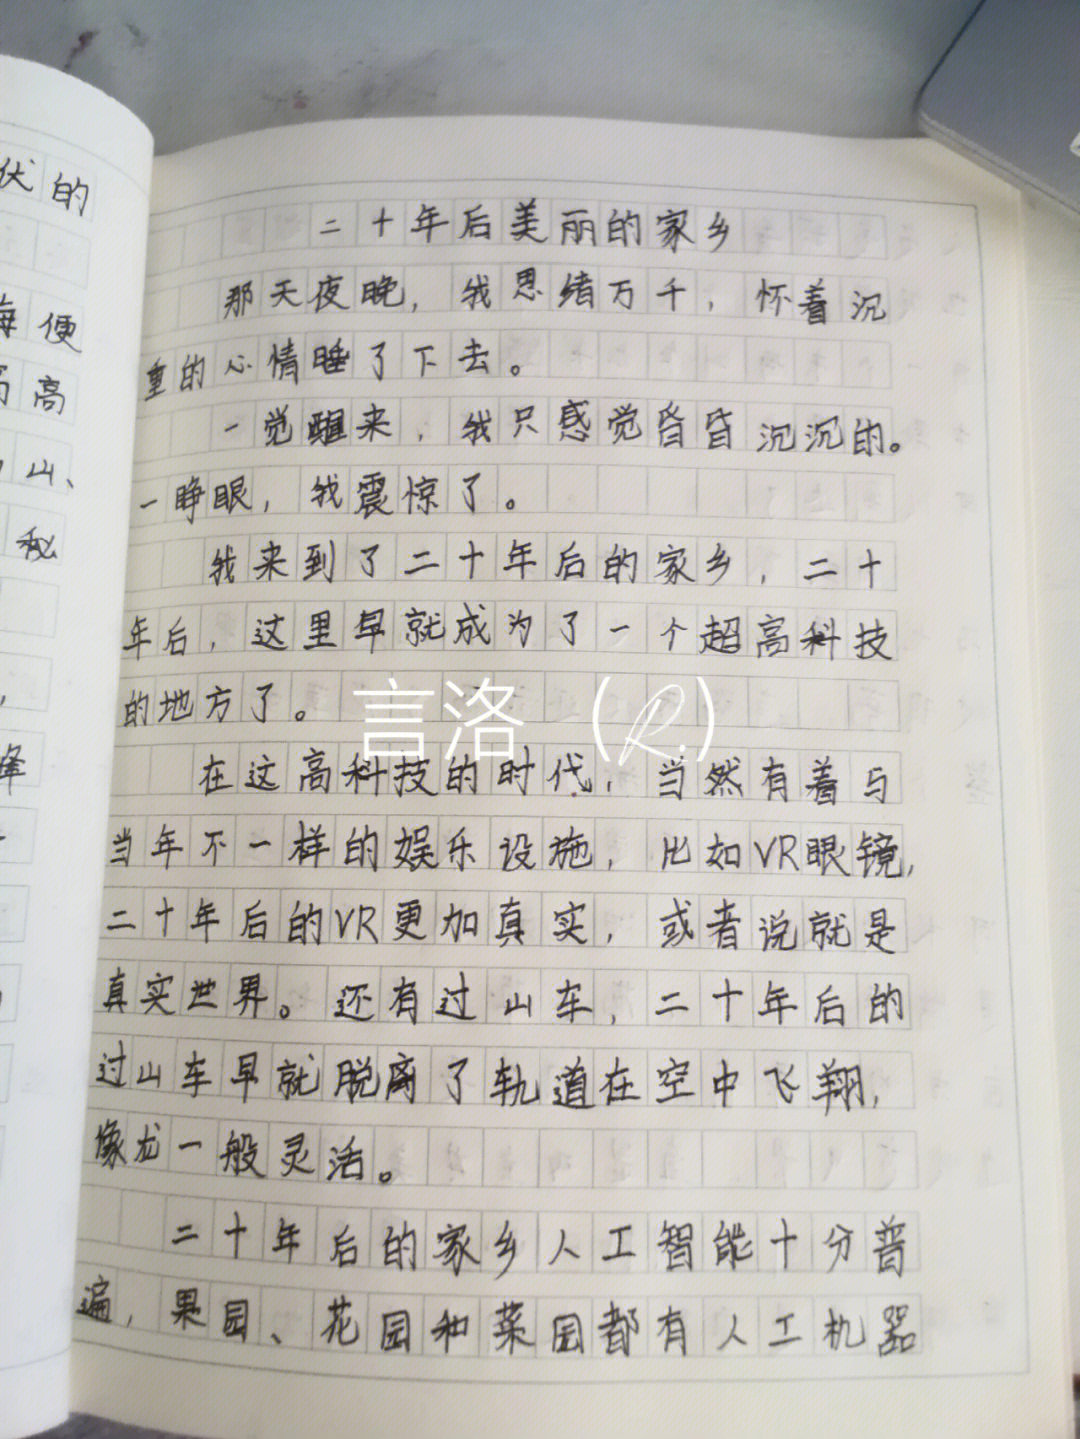 伏的
便
高
山、
秘
二十年后美丽的家乡
那天夜晚，我思绪万千，怀着沉
重的心情睡了下去。
一觉醒来，我只感觉昏昏沉沉的。
一睁眼，我震惊了。
我来到了二十年后的家乡，二十
年后，这里早就成为了一个超高科技
的地方了。
言洛（R.）
在这高科技的时代，当然有着与
当年不一样的娱乐设施，比如VR眼镜，
二十年后的VR更加真实，或者说就是
真实世界。还有过山车，二十年后的
过山车早就脱离了轨道在空中飞翔，
像龙一般灵活。
二十年后的家乡人工智能十分普
遍，果园、花园和菜园都有人工机器